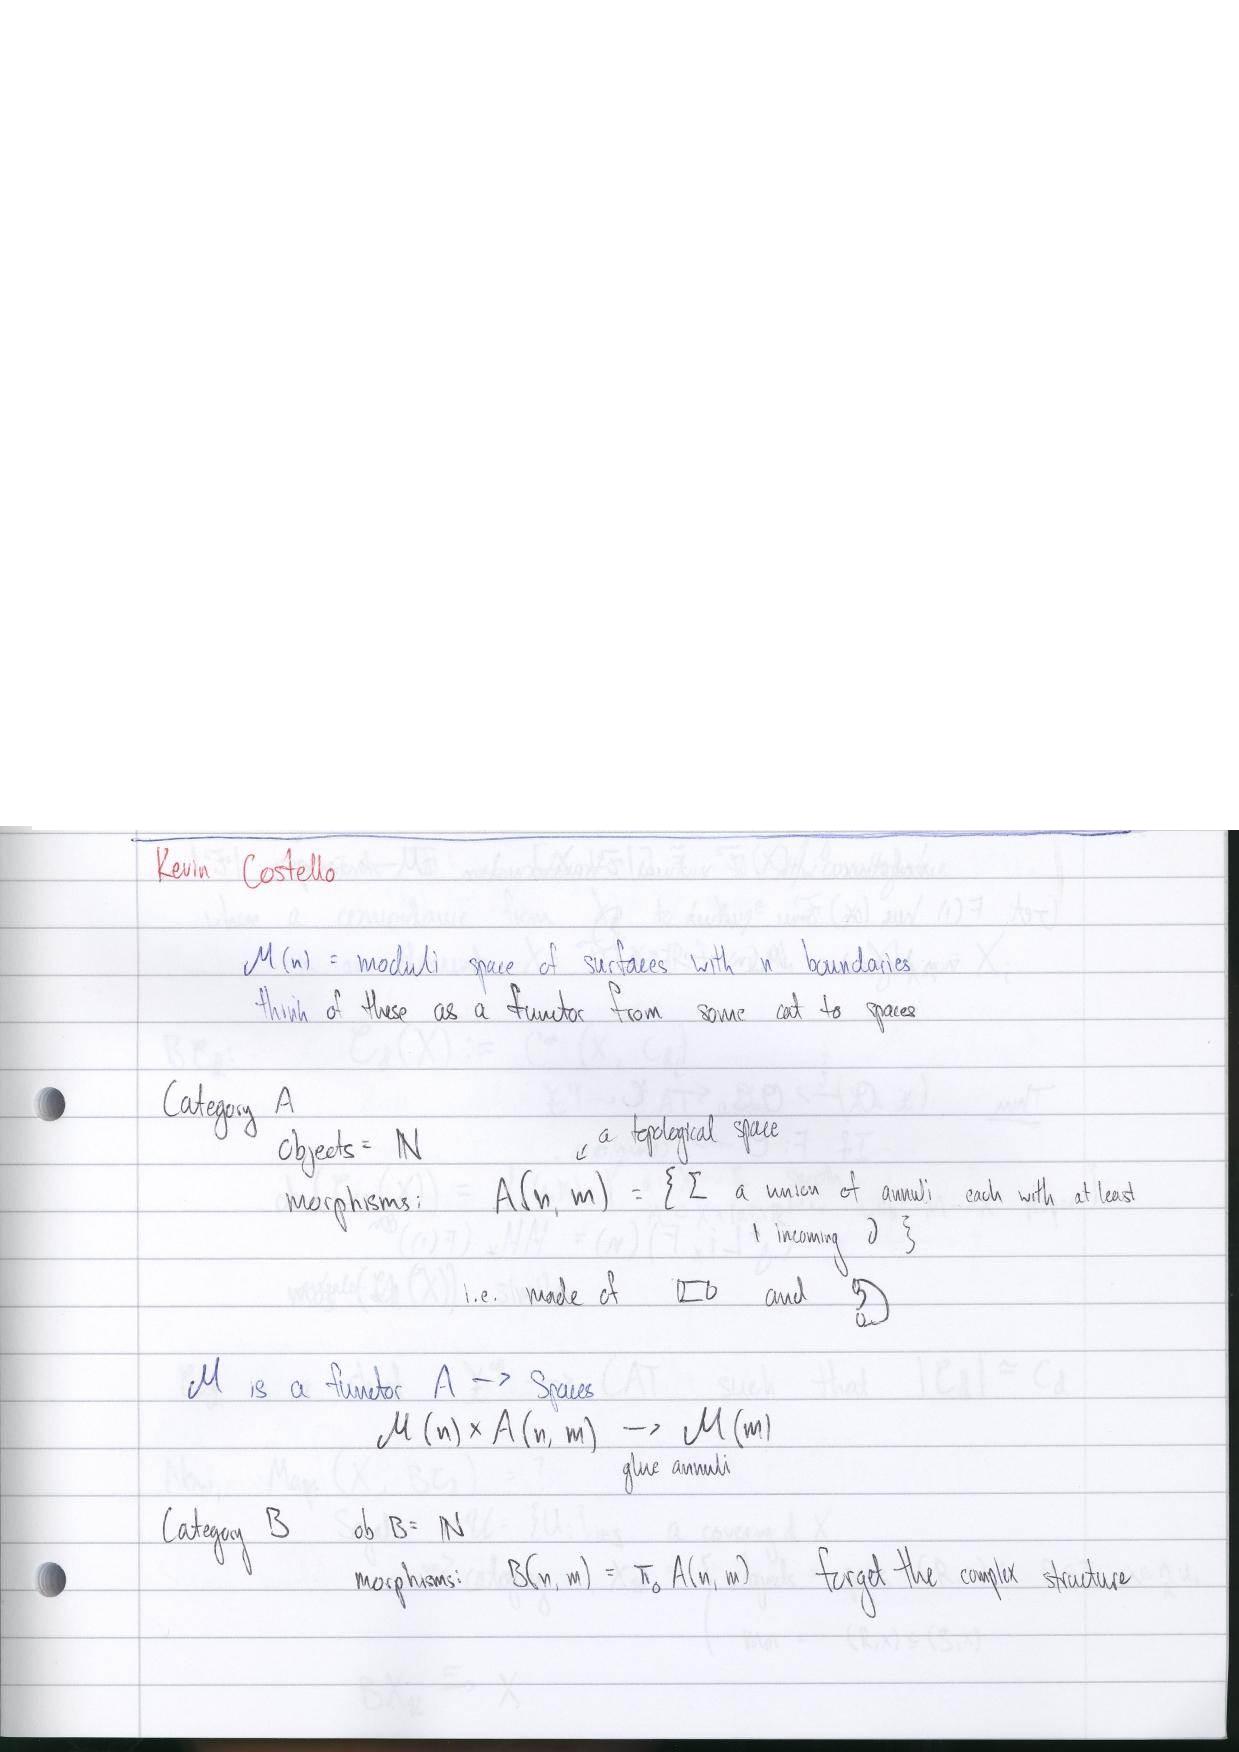 Kevin Costello
M(n) = moduli space of surfaces with n boundaries
think of these as a functor from some cat to spaces
Category A
objects = ℕ
a topological space
morphisms: A(n, m) = { Σ a union of annuli each with at least
1 incoming ∂ }
i.e. made of and
M is a functor A -> Spaces
M(n) × A(n, m) -> M(m)
glue annuli
Category B ob B = ℕ
morphisms: B(n, m) = π₀ A(n, m) forget the complex structure